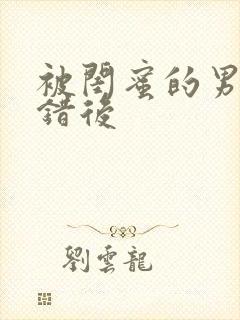 被閨蜜的男
錯後
劉雲龍